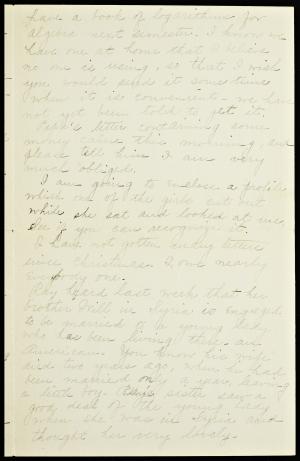 have a book of logarithms for
algebra next semester. I know we
have one at home that I believe
no one is using, so that I wish
you would send it some time
when it is convenient - we have
not yet been told to get it.
Papa's letter containing some
money came this morning, and
please tell him I am very
much obliged.
I am going to inclose a profile
which one of the girls cut out
while she sat and looked at me,
see if you can recognize it.
I have not gotten many letters
since Christmas. I owe nearly
everybody one.
Ray heard last week that her
brother Will in Syria is engaged
to be married to a young lady
who has been living there - an
American. You know his wife
died two years ago, when he had
been married only a year, leaving
a little boy. Ray's sister saw a
good deal of the young lady
when she was in Syria and
thought her very lovely.